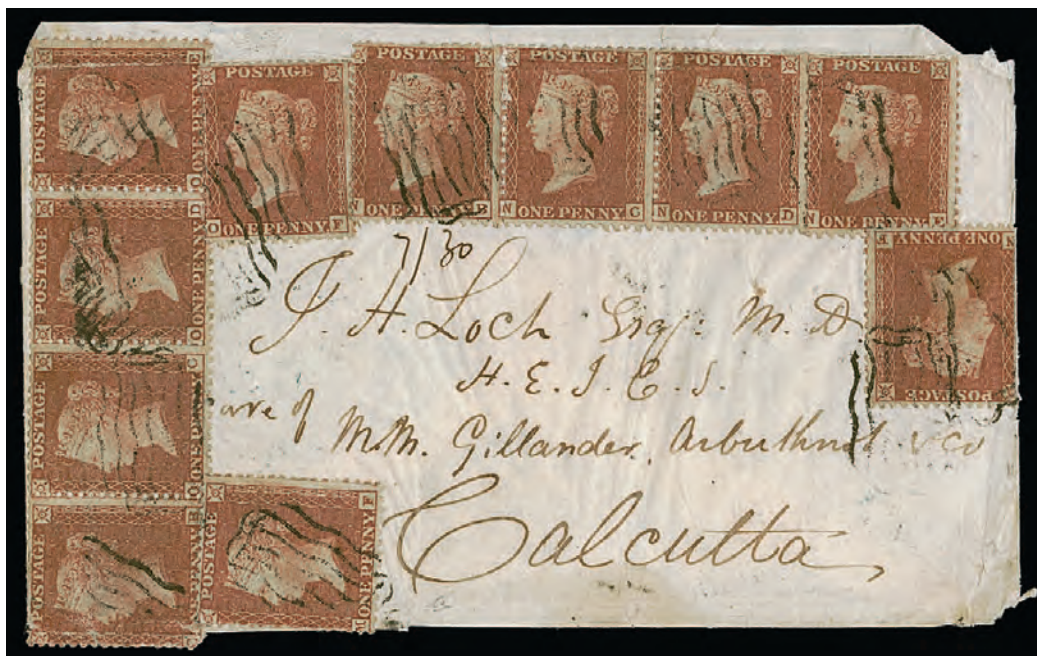 POSTAGE
ONE PENNY
O E
POSTAGE
ONE PENNY
O D
POSTAGE
ONE PENNY
O C
POSTAGE
ONE PENNY
POSTAGE
ONE PENNY
M F
POSTAGE
O ONE PENNY F
POSTAGE
N ONE PENNY B
POSTAGE
N ONE PENNY C
POSTAGE
N ONE PENNY D
POSTAGE
N ONE PENNY E
POSTAGE
N ONE PENNY F
7/30
J. H. Loch Esqr. M. D
H. E. I. C. S.
Care of
M.M. Gillander, Arbuthnot & Co
Calcutta